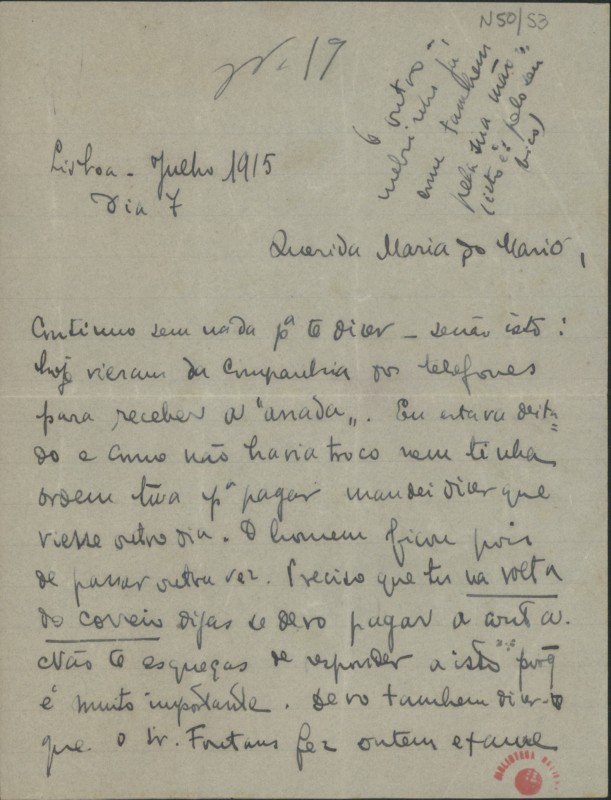 N50/53
Nº 19
O outro
melrinho já
come tambem
pela sua mão
(isto é pelo seu
bico)
Lisboa - Julho 1915
Dia 7
Querida Maria do Mario,
Continuo sem nada pª te dizer - senão isto:
hoje vieram da Companhia dos telefones
para receber a "anada„. Eu estava deita=
do e como não havia troco nem tinha
ordem tua pª pagar mandei dizer que
viesse outro dia. O homem ficou pois
de passar outra vez. Preciso que tu na volta
do correio digas se devo pagar a conta.
Não te esqueças de responder a isto porq̃
é muito importante. Devo tambem dizer-te
que o Sr. Fontans fez ontem exame
BIBLIOTECA